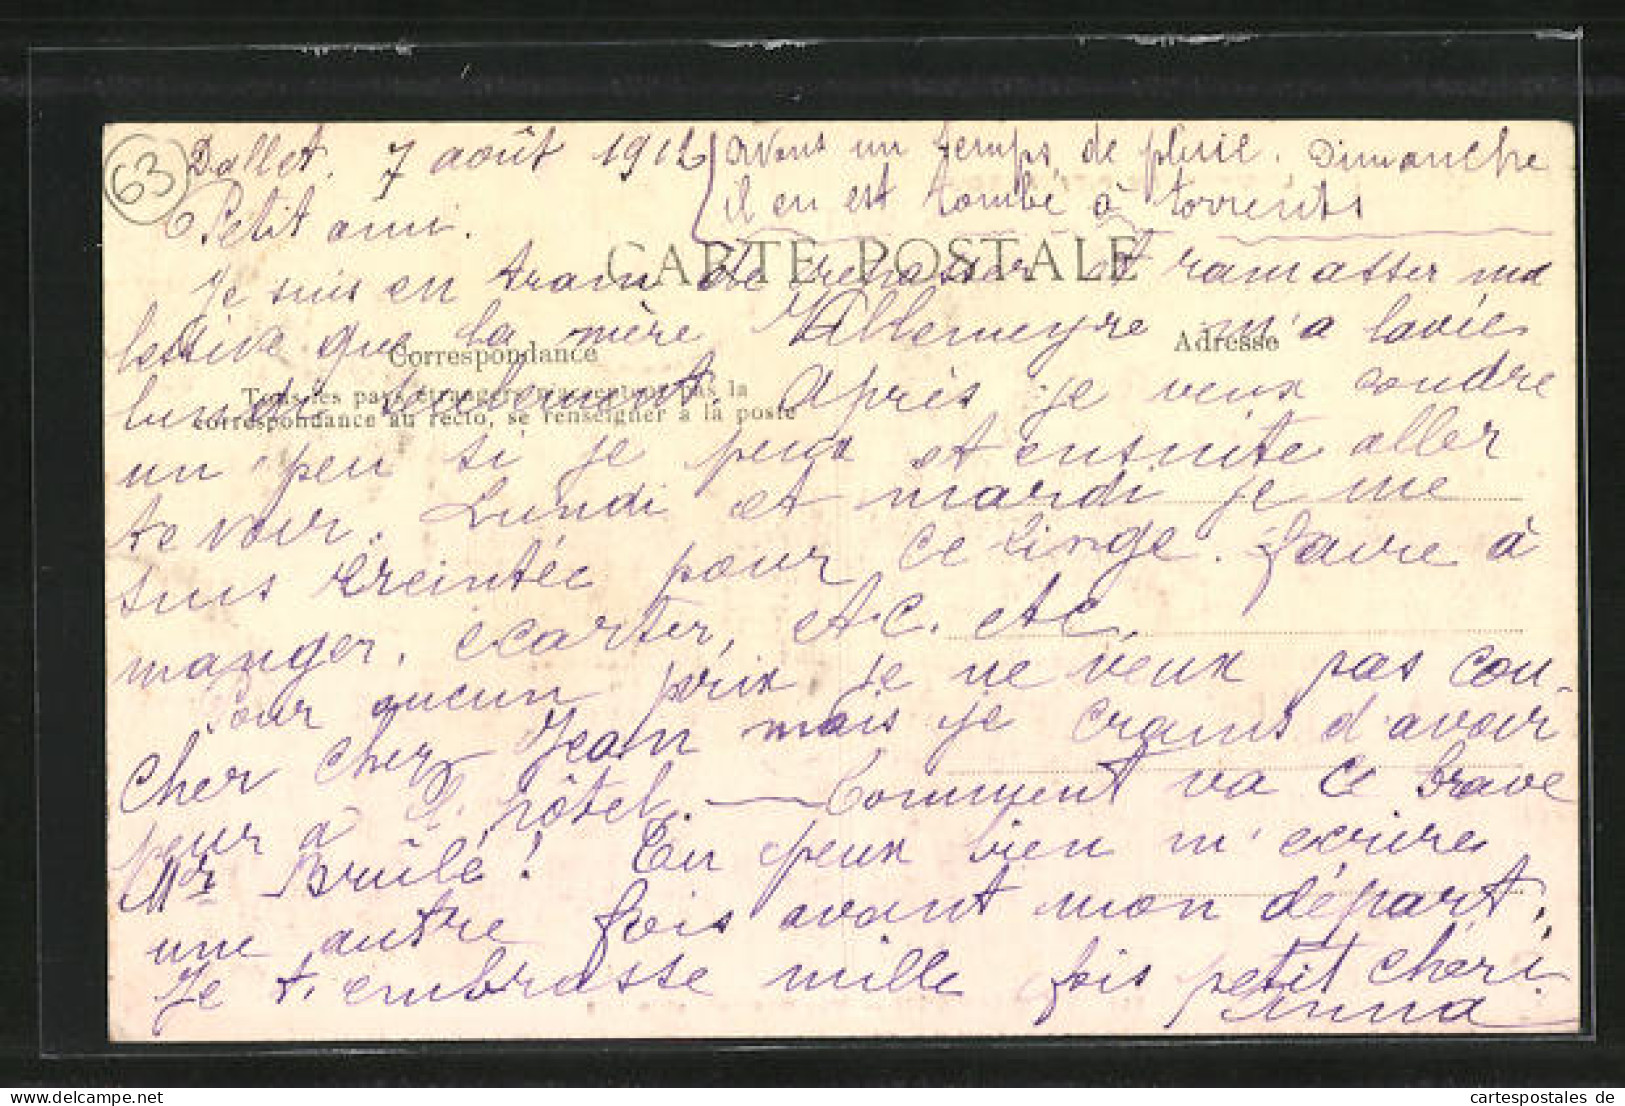 63
Dallet. 7 août 1912
avons un temps de pluie. Dimanche
il en est tombé à torrents
Petit ami.
CARTE POSTALE
Je suis en train de repasser et ramasser ma
lessive que la mère Villemeyre m'a lavée
Correspondance
Adresse
Tous les pays étrangers n'acceptent pas la
correspondance au recto, se renseigner à la poste
lundi seulement. Après je veux coudre
un peu si je peux et ensuite aller
te voir. Lundi et mardi je me
suis éreintée pour ce linge. faire à
manger, écarter, etc. etc.
Pour aucun prix je ne veux pas cou-
cher chez Jean mais je crains d'avoir
peur à l'hôtel. — Comment va ce brave
Mr Brûlé! Tu peux bien m'écrire
une autre fois avant mon départ.
Je t'embrasse mille fois petit chéri
Anna
cartespostales de